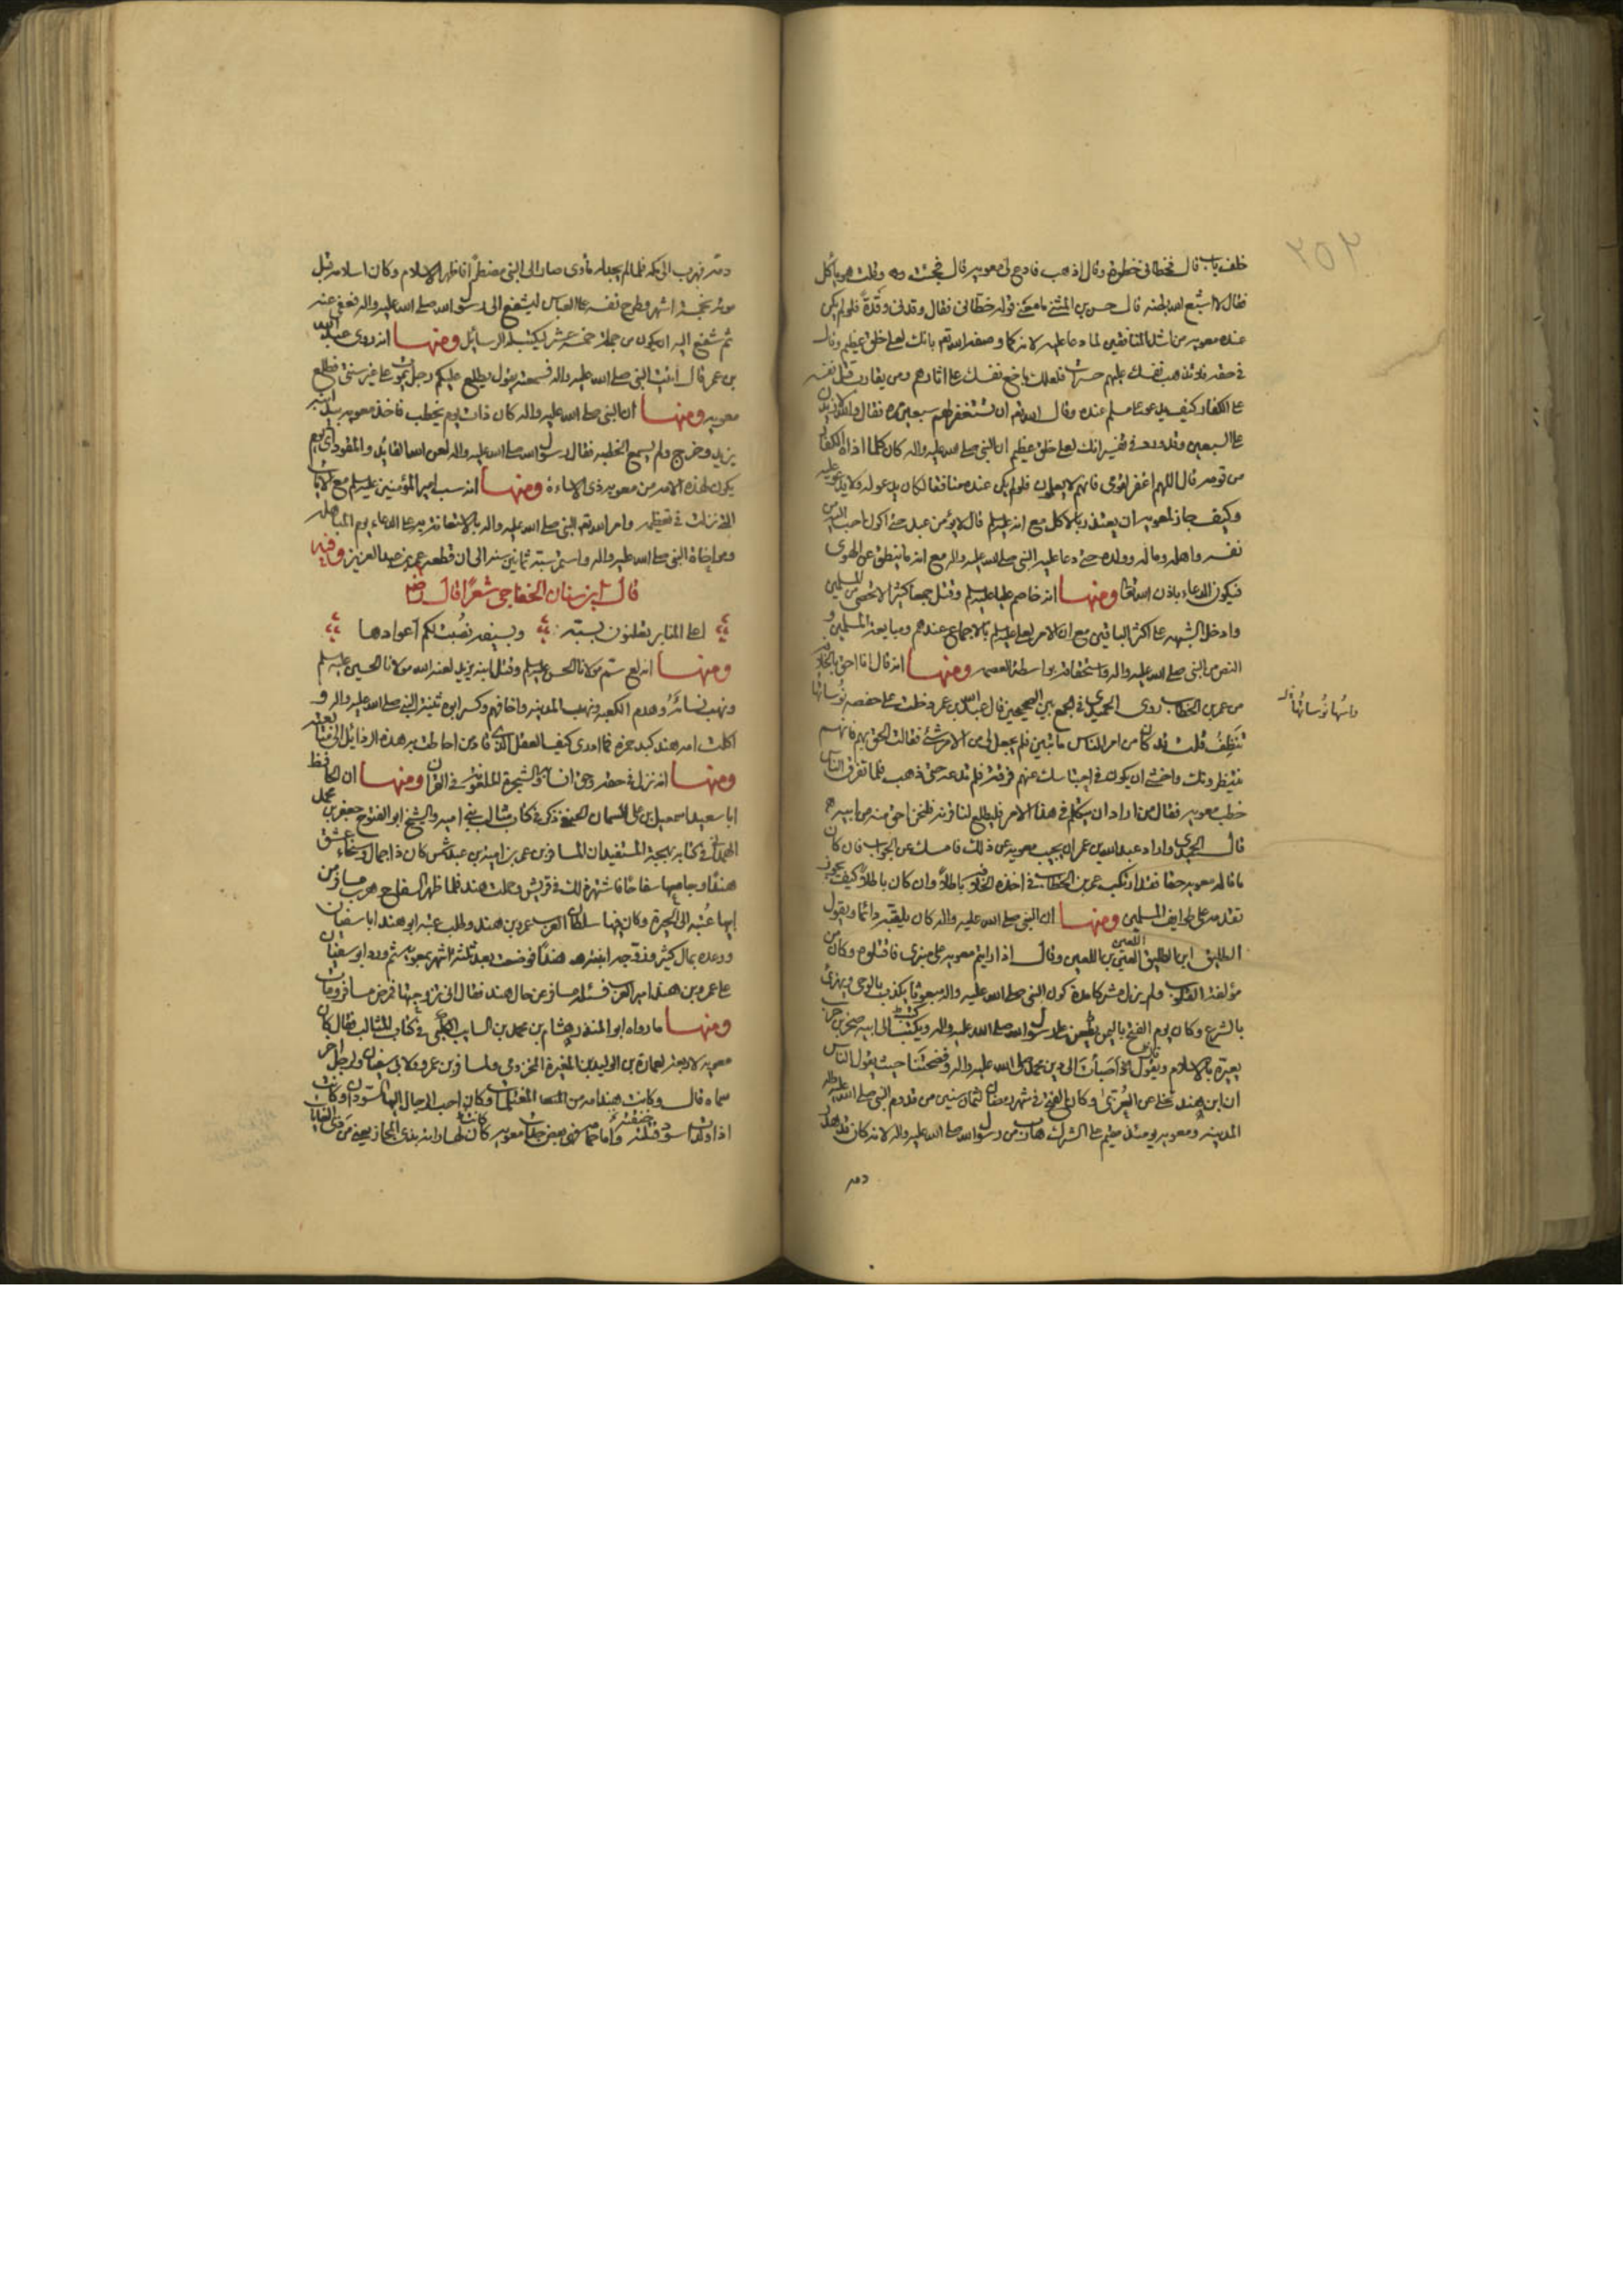 ٢٥٢
خلف باب قال فحطانی خطوة وقال اذهب فادع لی معویه قال فجئت وقلت هو یاکل
فقال لا اشبع الله بطنه قال حسن بن المثنی ما معنی قوله حطانی فقال وقدنی وقدة فلو لم یکن
عنده معویه من اشد المنافقین لما دعا علیه لانه کما وصفه الله تعم بانک لعلی خلق عظیم وقال
فی حقه فلا تذهب نفسک علیهم حسرات فلعلک باخع نفسک علی اثارهم ومن یقارب قتل نفسه
علی الکفار کیف یدعو علی مسلم عنده وقال الله تعم ان تستغفر لهم سبعین مرة فقال والله لازیدن
علی السبعین وقد ورد فی تفسیر انک لعلی خلق عظیم ان النبی صلی الله علیه واله کان کلما اذاه الکفار
من قومه قال اللهم اغفر لقومی فانهم لا یعلمون فلو لم یکن عنده منافقا لکان یدعو له ولا یدعو علیه
وکیف جاز لمعویه ان یعتذر بالاکل مع انه علیه السلم قال لا یؤمن عبد حتی اکون احب الیه من
نفسه واهله وماله وولده حتی دعا علیه النبی صلی الله علیه واله مع انه ما ینطق عن الهوی
فیکون الدعاء باذن الله تعالی ومنها انه خاصم علیا علیه السلم وقتل جمعا کثیرا لا تحصی من المسلمین
وادخل الشبهه علی اکثر الباقین مع ان الامر لعلی علیه السلم بالاجماع عندهم ومبایعة المسلمین و
النص من النبی صلی الله علیه واله واستحقاقه بواسطة العصمه ومنها انه قال انا احق بالخلافة
من عمر بن الخطاب روی الحمیدی فی الجمع بین الصحیحین قال عبد الله بن عمر دخلت علی حفصه ونوساتها
تنطف قلت قد کان من امر الناس ما تبین فلم یجعل لی من الامر شئ فقالت الحق بهم فانهم
ینتظرونک واخشی ان یکون فی احتباسک عنهم فرقة فلم تدعه حتی ذهب فلما تفرق الناس
خطب معویه فقال من اراد ان یتکلم فی هذا الامر فلیطلع لنا قرنه فلنحن احق منه ومن ابیه
قال الحمیدی واراد عبد الله بن عمر ان یجیب معویه عن ذلک فامسک عن الجواب فان کان
ما قاله معویه حقا فقد ارتکب عمر بن الخطاب فی اخذه الخلافة باطلا وان کان باطلا کیف یجوز
تقدمه علی طوایف المسلمین ومنها ان النبی صلی الله علیه واله کان یلعنه دائما ویقول
الطلیق ابن الطلیق اللعین بن اللعین وقال اذا رایتم معویه علی منبری فاقتلوه وکان من
مؤلفة القلوب ولم یزل مشرکا مدة کون النبی صلی الله علیه واله مبعوثا یکذب بالوحی ویهزئ
بالشرع وکان یوم الفتح بالیمن یطعن علی رسول الله صلی الله علیه واله ویکتب الی ابیه صخر بن حرب
یعیره بالاسلام ویقول اصبأت الی دین محمد صلی الله علیه واله وفضحتنا حیث یقول الناس
ان ابن هند تخلی عن العزی وکان الفتح فی شهر رمضان لثمان سنین من قدوم النبی صلی الله علیه واله
المدینه ومعویه یومئذ مقیم علی الشرک هارب من رسول الله صلی الله علیه واله لانه کان قد هدر
دمه
دمه فهرب الی مکه فلما لم یجد له مأوی صار الی النبی مضطرا فاظهر الاسلام وکان اسلامه قبل
موته بخمسة اشهر وطرح نفسه علی العباس لیشفع الی رسول الله صلی الله علیه واله فعفی عنه
ثم شفع الیه ان یکون من جملة خمسة عشر لیکتب له الرسائل ومنها انه روی عبد الله
بن عمر قال اتیت النبی صلی الله علیه واله فسمعته یقول یطلع علیکم رجل یموت علی غیر سنتی فطلع
معویه ومنها ان النبی صلی الله علیه واله کان ذات یوم یخطب فاخذ معویه بید ابنه
یزید وخرج ولم یسمع الخطبه فقال رسول الله صلی الله علیه واله لعن الله القائد والمقود ای یوم
یکون لهذه الامه من معویه ذی الاساءة ومنها انه سب امیر المؤمنین علیه السلم مع الایات
التی نزلت فی تعظیمه وامر الله تعم النبی صلی الله علیه واله بالاستعانة به علی الدعاء یوم المباهله
ومواخاة النبی صلی الله علیه واله واستمر سبه ثمانین سنه الی ان قطعه عمر بن عبد العزیز وفیه
قال ابن سنان الخفاجی شعرا قال
اعلی المنابر تعلنون بسبه وبسیفه نصبت لکم اعوادها
ومنها انه سم مولانا الحسن علیه السلم وقتل ابنه یزید لعنه الله مولانا الحسین علیه السلم
ونهب نسائه وهدم الکعبه ونهب المدینه واخافهم وکسر ابوه ثنیة النبی صلی الله علیه واله و
اکلت امه هند کبد حمزه فما ادری کیف العقل الذی قاد من احاطت به هذه الرذائل الی متابعته
ومنها انه نزل فی حقه وحق انسابه والشجرة الملعونة فی القرآن ومنها ان الحافظ
ابا سعید اسمعیل بن علی السمان الحنفی ذکر فی کتاب مثالب بنی امیه والشیخ ابو الفتوح جعفر بن محمد
الهمدانی فی کتابه بهجة المستفید ان المسافر بن عمرو بن امیة بن عبد شمس کان ذا جمال وسخاء عشق
هندا وجامعها سفاحا فاشتهر ذلک فی قریش وحملت هند فلما ظهر السفاح هرب مسافر من
ابیها عتبه الی الحیره وکان فیها سلطان العرب عمرو بن هند وطلب عتبه ابو هند ابا سفیان
ووعده بمال کثیر وزوجه ابنته هندا فوضعت بعد ثلثة اشهر معویه ثم ورد ابو سفیان
علی عمرو بن هند امیر العرب فسئله مسافر عن حال هند فقال انی تزوجتها فمرض مسافر ومات
ومنها ما رواه ابو المنذر هشام بن محمد بن السایب الکلبی فی کتاب المثالب فقال کان
معویه لاربعه لعمارة بن الولید بن المغیرة المخزومی ولمسافر بن عمرو ولابی سفیان ولرجل اخر
سماه قال وکانت هند امه من المغتلمات وکان احب الرجال الیها السودان وکانت
اذا ولدت اسود قتلته واما حمامه فهی بعض جدات معویه کان لها رایة بذی المجاز یعنی من ذوی الغایات